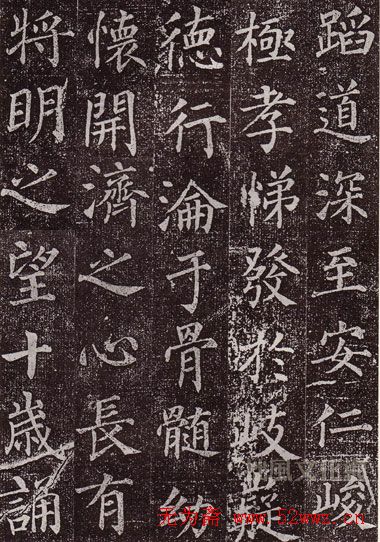 蹈道深至安仁峻
極孝悌發於岐嶷
德行淪于骨髓幼
懷開濟之心長有
將明之望十歲誦
无为斋 www.52wwz.cn